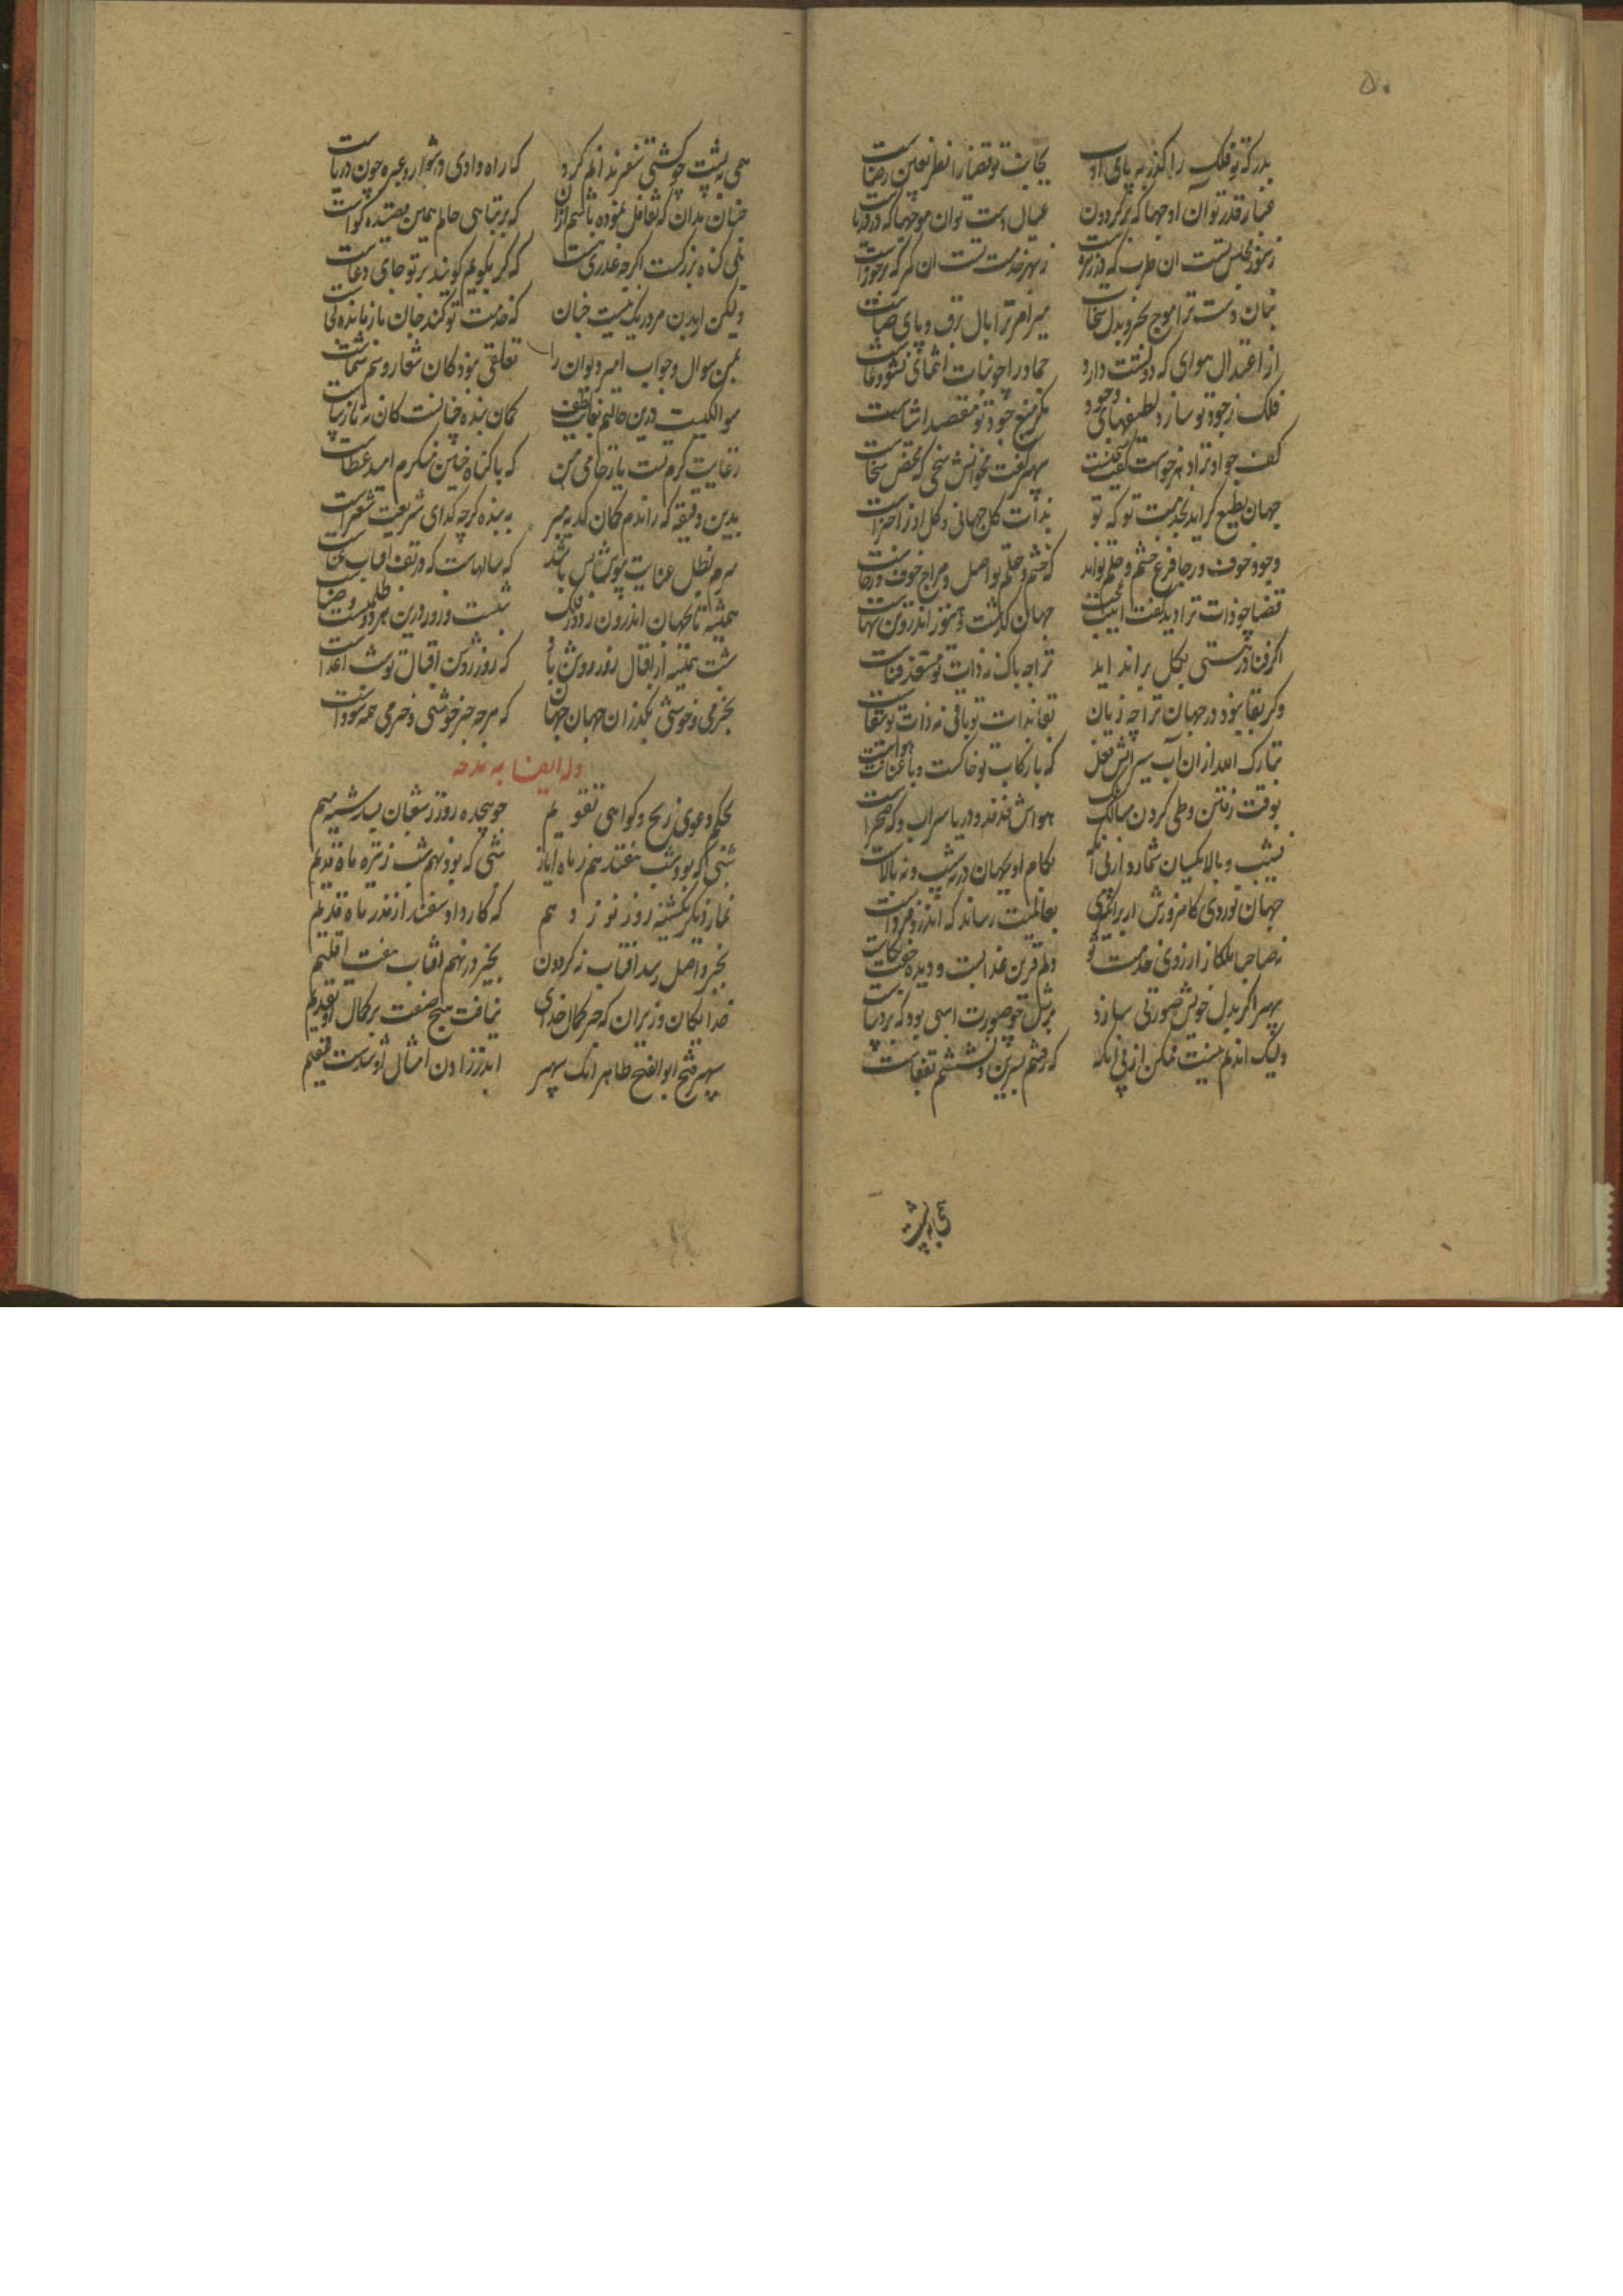 ۵۰
بدرگه تو فلک را گذر به پای ادب
بجانب تو قضا را نظر بعین رضاست
غبار قدر تو آن اوجها که بر گردون
عیال دست تو آن موجها که در دریاست
ز سور مجلس تست ان طرب که در زهره است
ز بهر خدمت تست ان کمر که بر جوزاست
بنان دست ترا موج بحر و بذل سحاب
مسیر امر ترا بال برق و پای صباست
از اعتدال هوای که دولتت دارد
جماد را چو نبات انتمای نشو و نماست
فلک ز جود تو سازد لطیفهای وجود
مگر که منبع جود تو مقصد اشیاست
کف جواد ترا دهر خواست گفت سخیست
سپهر گفت مخوانش سخی که محض سخاست
جهان بطبع گراید بخدمت تو که تو
بذات کل جهانی و کل او ز اجزاست
وجود خوف و رجا فرع خشم و حلم تواند
که خشم و حلم تو اصل و مزاج خوف و رجاست
قضا چو ذات ترا دید گفت اینت عجب
جهان گذشت و هنوز اندرون تن تنهاست
اگر فنا در هستی بگل براند اید
ترا چه باک نه ذات تو مستعد فناست
وگر بقا نبود در جهان ترا چه زیان
بقا بذات تو باقی نه ذات تو ببقاست
تبارک الله از ان آب سیر آتش نعل
که با رکاب تو خاکست و با عنانت هواست
بوقت رفتن و طی کردن مسالک
هواش فدفد و دریا سراب و که صحراست
نشیب و بالا یکسان شمارد از پی آنک
بکام او بجهان در نه شیب و نه بالاست
جهان نوردی کامروزش ار برانگیزی
بعالمیت رساند که اندرو فرداست
نه صاحبا ملکا ز ارزوی خدمت تو
دلم قرین عذابست و دیده جفت بکاست
بهر اگر بدل خویش صورتی سازد
بر مثل تو چو صورت اسبی بود که بر دیباست
ولیک اندم نیست ممکن از پی انکه
که چشم نرگس و بنفشه تفتاست
همی به پشت
همی به پشت چو کشتی سفر ندانم کرد
که راه وادی دشوار و عبره چون دریاست
چنان مدان که تغافل نموده باشم ازان
که بر تباهی حالم همین قصیده گواست
بلی گناه بزرگست اگر چه عذری هست
که گر بگویم گویند بر تو جای دعاست
ولیکن ار بدن مرد ریگ نیست چنان
که خدمت تو کند جان باز مانده کی
بمن سوال و جواب امیر و دیوان را
تعلقی نبود کان شعار و رسم شماست
سوالکیست درین حالتم بغایت لطف
گمان بنده چنانست کان نه نازیباست
ز غایت کرم تست یا ز خامی من
که با گناه چنین منکرم امید عطاست
بدین دقیقه که راندم گمان کدیه مبر
به بنده گرچه گدای شریعت شعر است
سرم بظل عنایت بپوش بس باشد
که سالهاست که در تف افتاب عناست
همیشه تا بجهان اندرون ز دور فلک
شبست و روز و درین هر دو ظلمتست و ضیاست
شبت همیشه از اقبال روز روشن باد
که روز روشن اقبال تو شب اعداست
بخرمی و خوشی بگذران جهان جهان
که هر چه جز خوشی و خرمی همه سوداست
وله ایضا به مدحه
بحکم دعوی زیج و گواهی تقویم
چو هجده روز ز شعبان سه شنبه نهم
شبی که بود شب هفتدهم ز ماه ایار
شبی که بود نهم شب ز تیره ماه قدیم
نماز دیگر یکشنبه روز نوزدهم
که کار داد سفندار از مذ ماه قدیم
بخیر واصل رسد افتاب نه گردون
بخیر در نهم افتاب هفت اقلیم
خدایگان وزیران که جز کمال خدای
نیافت هیچ صفت بر کمال او تقدیم
سپهر فتح ابو الفتح طاهر انک سپهر
اندر زادن امثال او شدست عقیم